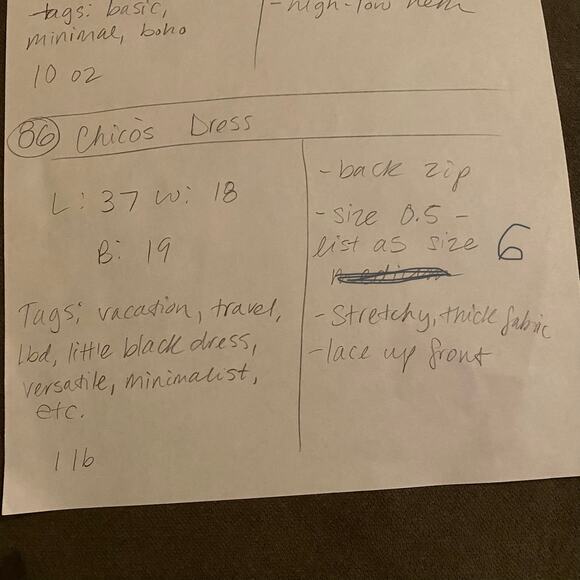 tags: basic,
minimal, boho
10 oz
- high-low hem
86 Chico's Dress
L: 37 W: 18
B: 19
Tags: vacation, travel,
lbd, little black dress,
versatile, minimalist,
etc.
1 lb
- back zip
- size 0.5 -
list as size 6
- Stretchy, thick fabric
- lace up front